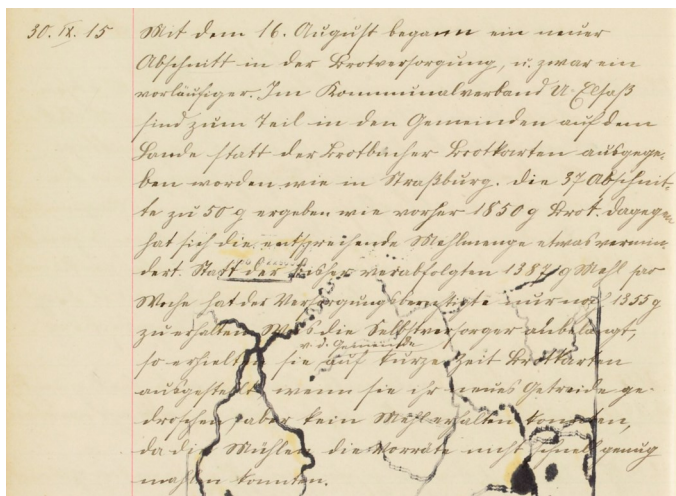 30. IX. 15
Mit dem 16. August begann ein neuer
Abschnitt in der Brotversorgung, u. zwar ein
vorläufiger. Im Kommunalverband U-Elsaß
sind zum Teil in den Gemeinden auf dem
Lande statt der Brotbücher Brotkarten ausgege-
ben worden wie in Straßburg. Die 37 Abschnit-
te zu 50 g ergeben wie vorher 1850 g Brot. Dagegen
hat sich die entsprechende Mehlmenge etwas vermin-
dert. Statt der bisher verabfolgten 1387 g Mehl pro
Woche hat der Versorgungsberechtigte nur noch 1355 g
zu erhalten. Was die Selbstversorger anbelangt,
v. d. Gemeinde
so erhielten sie auf kurze Zeit Brotkarten
ausgestellt, wenn sie ihr neues Getreide ge-
droschen, aber kein Mehl erhalten konnten,
da die Mühlen die Vorräte nicht schnell genug
mahlen konnten.